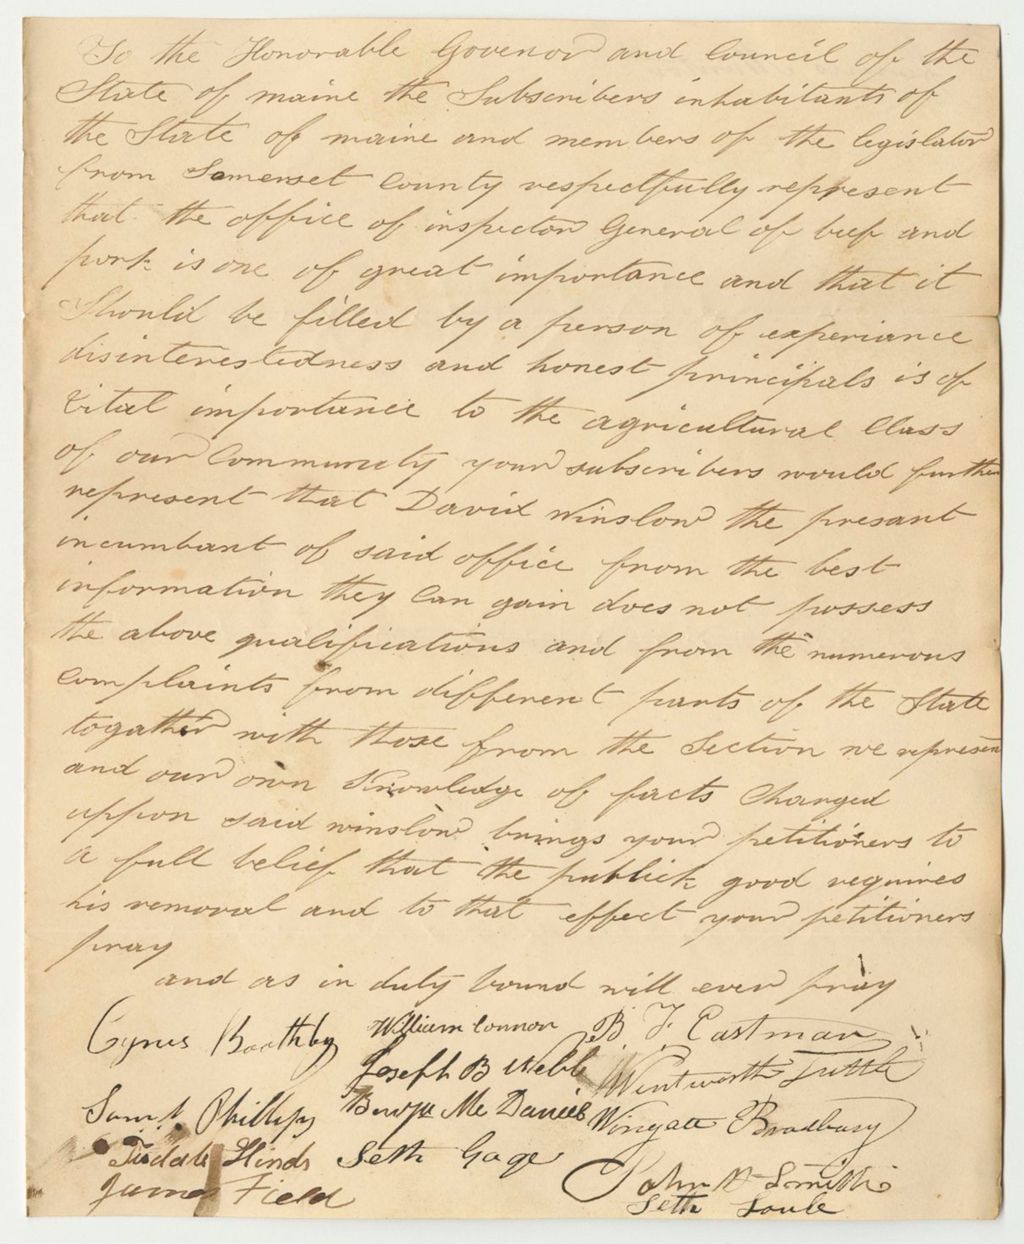 To the Honorable Govenor and Council of the
State of maine the Subscribers inhabitants of
the State of maine and members of the legislator
from Somerset County respectfully represent
that the office of inspector General of beef and
pork is one of great importance and that it
Should be filled by a person of experiance
disinterestedness and honest principals is of
vital importance to the agricultural Class
of our Community your subscribers would further
represent that David Winslow the presant
incumbant of said office from the best
information they Can gain does not possess
the above qualifications and from the numerous
Complaints from different parts of the State
togather with those from the Section we represen
and our own Knowledge of facts Charged
uppon said winslow brings your petitioners to
a full belief that the publick good requires
his removal and to that effect your petitioners
pray
and as in duty bound will ever pray
Cyrus Boothby
Saml. Phillips
Tisdale Hinds
James Field
William Connor
Joseph B Webb
McDaniels
Seth Gage
B. F. Eastman
Wentworth Tuttle
Wingate Bradbury
John W Smith
Seth Soule